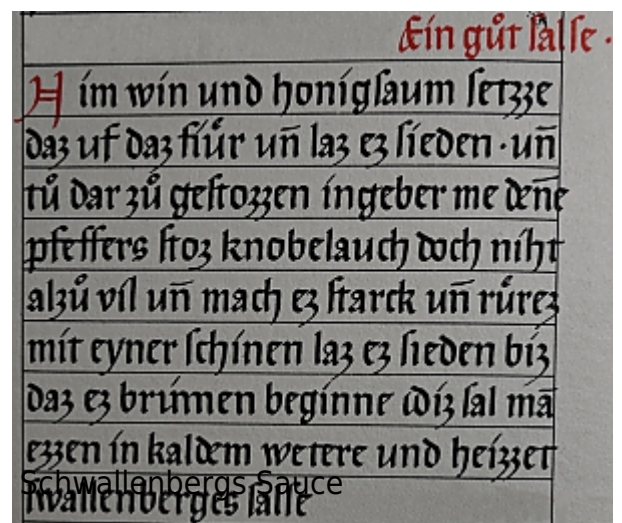 Ein gůt salse.
Nim win und honigsaum setzze
daz uf daz fiůr un̄ laz ez sieden · un̄
tů dar zů gestozzen ingeber me dēne
pfeffers stoz knobelauch doch niht
alzů vil un̄ mach ez starck un̄ růrez
mit eyner schinen laz ez sieden biz
daz ez brinnen beginne diz sal mā
ezzen in kaldem wetere und heizzet
swallenberges salse
Schwallenbergs Sauce